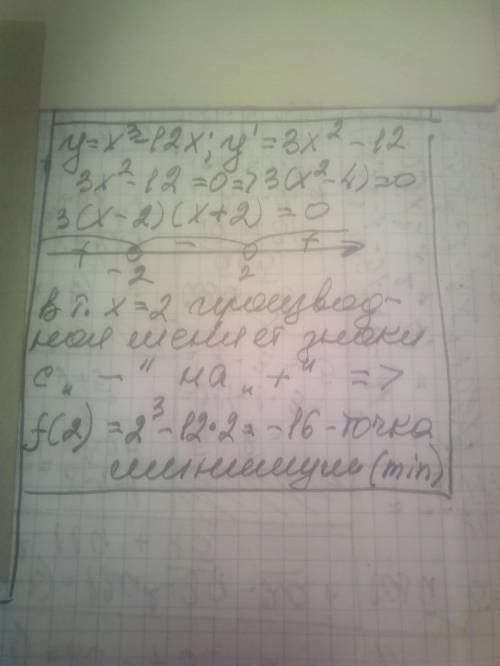 y=x³-12x; y'=3x²-12
3x²-12=0=>3(x²-4)=0
3(x-2)(x+2)=0
+ - +
-2 2
в т. x=2 производ-
ная меняет знаки
с „-" на „+" =>
f(2)=2³-12·2=-16-точка
минимум (min)